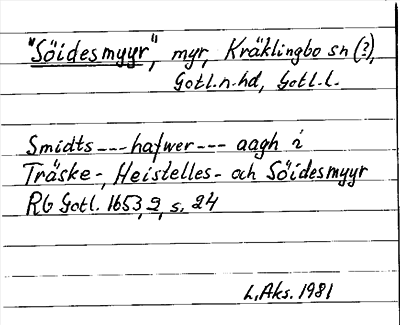 "Söidesmyyr", myr, Kräklingbo sn (?),
Gotl.n.hd, Gotl.l.
Smidts --- hafwer --- aagh i
Träske-, Heistelles- och Söidesmyyr
RG Gotl. 1653,2, s. 24
L.Aks. 1981